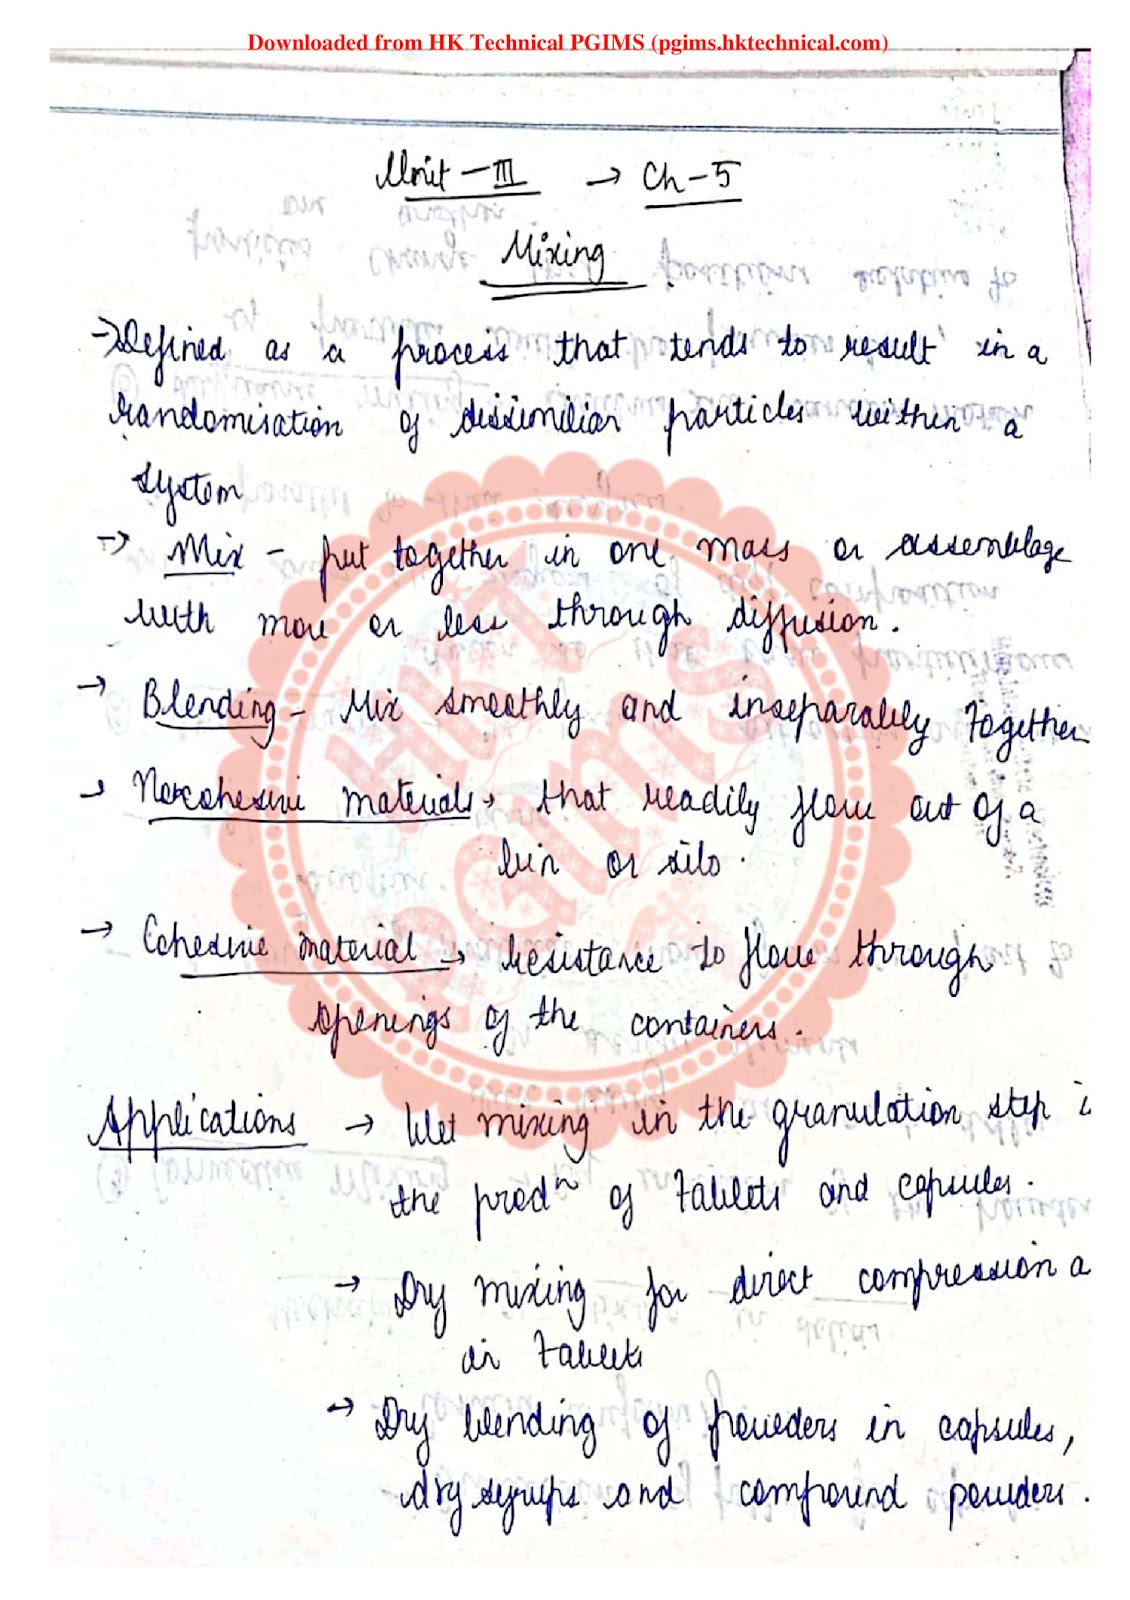 Downloaded from HK Technical PGIMS (pgims.hktechnical.com)
Unit - III → Ch - 5
Mixing
→ Defined as a process that tends to result in a
randomisation of dissimiliar particles within a
system
→ Mix - put together in one mass or assemblage
with more or less through diffusion.
→ Blending - Mix smoothly and inseparably together
→ Noncohesive materials → that readily flow out of a
bin or silo.
→ Cohesive material → resistance to flow through
openings of the containers.
Applications → Wet mixing in the granulation step i
the prodⁿ of tablets and capsules.
→ Dry mixing for direct compression a
in tablets
→ Dry blending of powders in capsules,
dry syrups and compound powders.
HKT
PGIMS